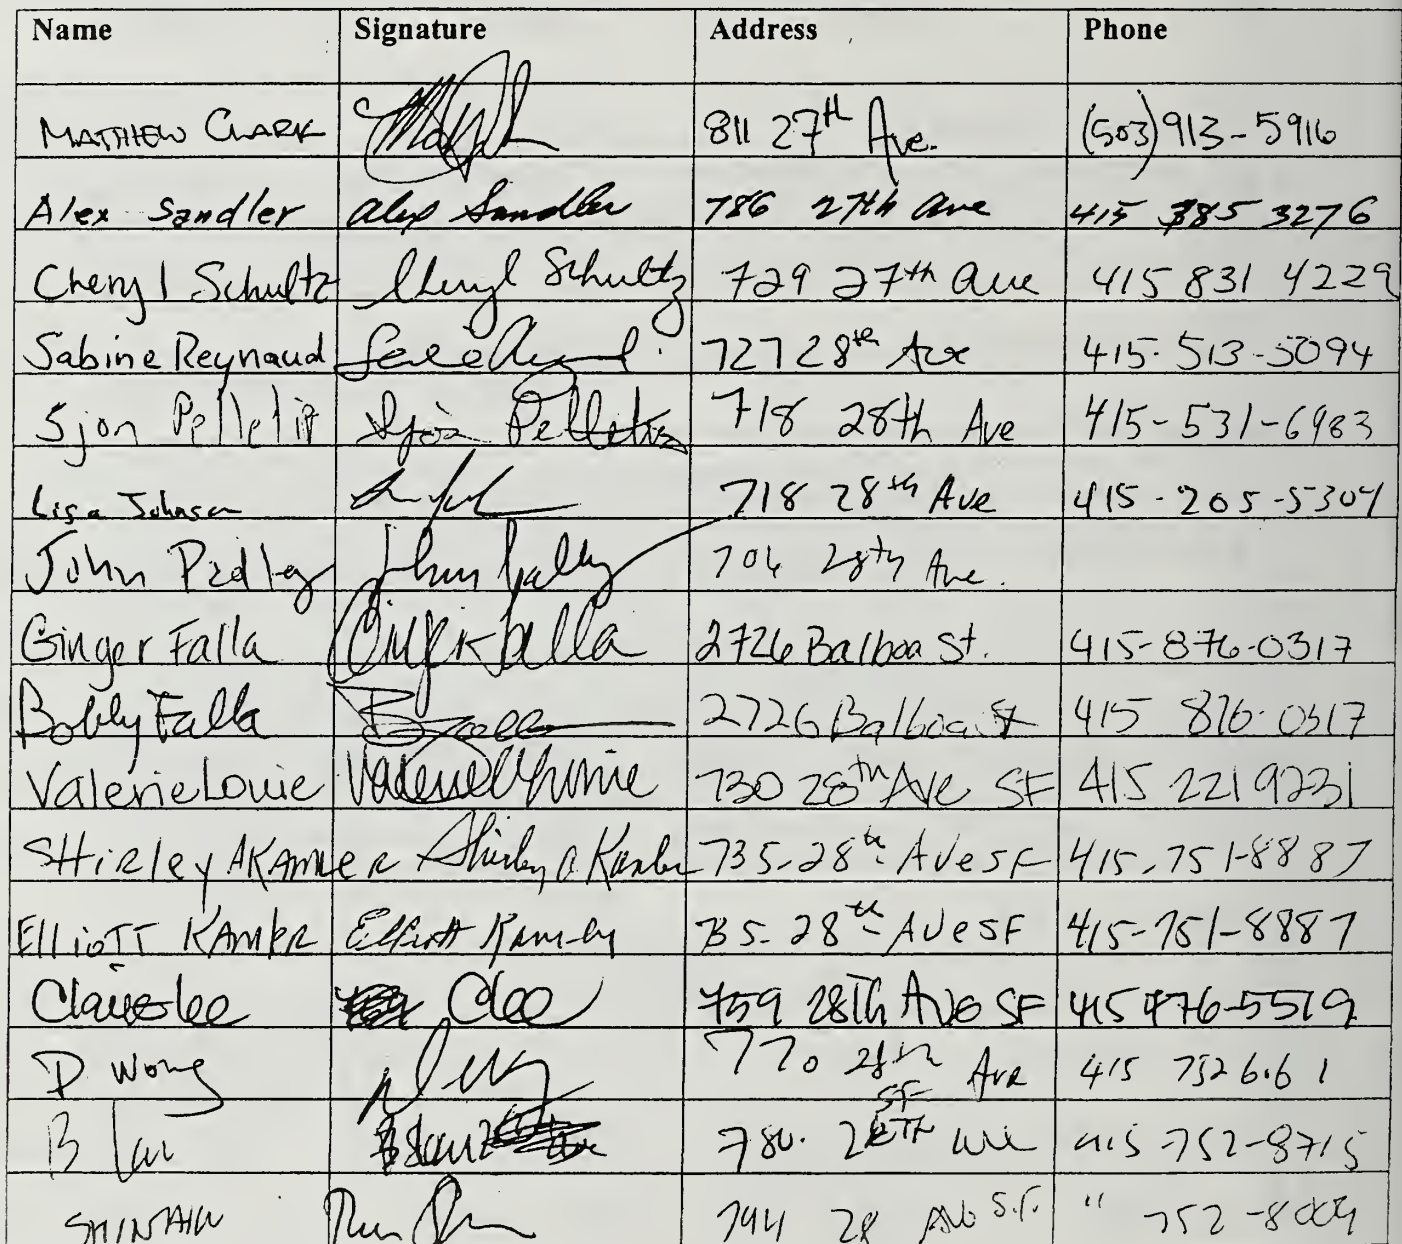 Name Signature Address Phone
MATTHEW CLARK 811 27th Ave. (503) 913-5916
Alex Sandler Alex Sandler 786 27th Ave 415 385 3276
Cheryl Schultz Cheryl Schultz 729 27th Ave 415 831 4229
Sabine Reynaud 727 28th Ave 415-513-5094
Sjon Pelletier Sjon Pelletier 718 28th Ave 415-531-6983
Lisa Johnson 718 28th Ave 415-205-5304
John 704 28th Ave.
Ginger Falla Ginger Falla 2726 Balboa St. 415-876-0317
Bobby Falla 2726 Balboa St 415 876-0317
Valerie Louie Valerie Louie 730 28th Ave SF 415 221 9231
SHIRley A KAMLER Shirley A Kamler 735-28th AVe SF 415-751-8887
Elliott KAMLER Elliott Kamler 735-28th AVe SF 415-751-8887
Claire lee Clee 759 28Th AVe SF 415 876-5519
D Wong 770 28th Ave SF 415 752
B Lau 780. 28TH Ave 415 752-8715
744 28 Ave S.F. " 752-8009